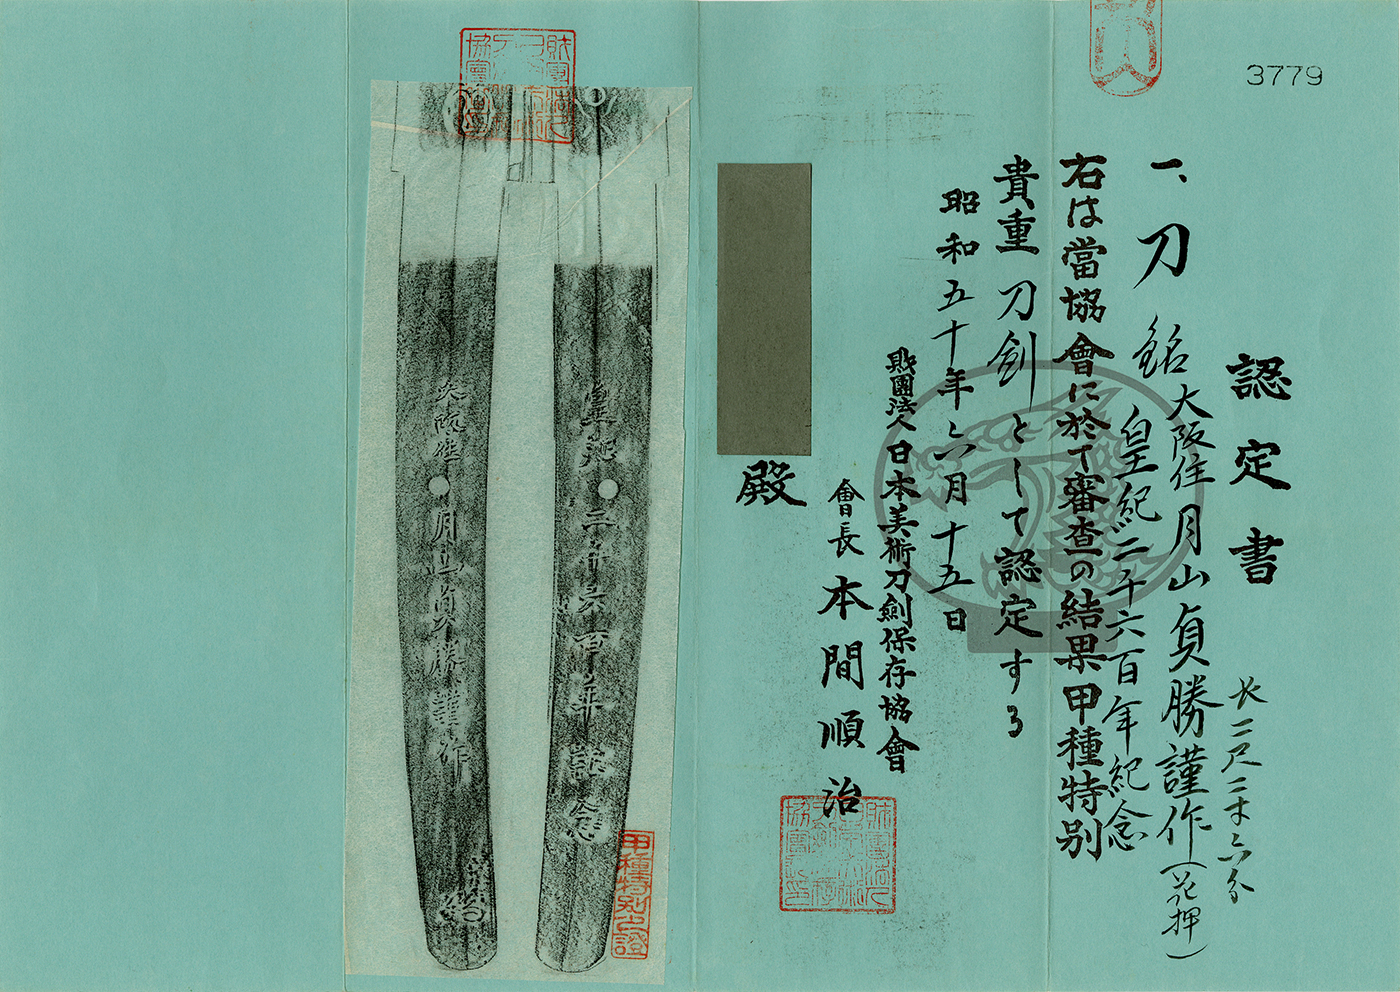 3779
認定書
一、刀 銘 大阪住月山貞勝謹作(花押)
長二尺二寸六分
皇紀二千六百年紀念
右は當協會に於て審査の結果甲種特別
貴重刀剣として認定する
昭和五十年六月十五日
財團法人日本美術刀劍保存協會
會長 本間順治
殿
皇紀二千六百年記念
大阪住月山貞勝謹作
甲種特別之證